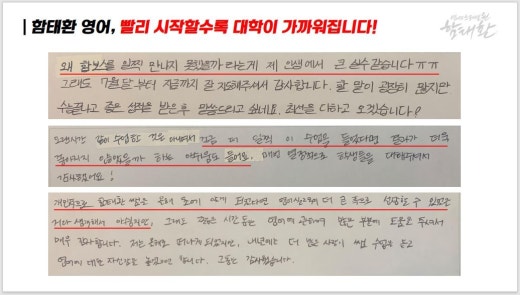 함태환 영어, 빨리 시작할수록 대학이 가까워집니다!
함태환
왜 함보스를 일찍 만나지 못했을까 라는게 제 인생에서 큰 실수같습니다ㅠㅠ
그래도 7월달부터 지금까지 잘 지도해주셔서 감사합니다. 할 말이 굉장히 많지만
수능끝나고 좋은 성적을 받은후 말씀드리고 싶네요. 최선을 다하고 오겠습니다!
오랜시간 같이 수업한 것은 아니지만 조금 더 일찍 이 수업을 들었다면 결과가 더욱
않았을까 하는 아쉬움도 들어요. 매번 열정적으로 학생들을 대해주셔서
감사했어요!
개인적으로 함태환 쌤은 조금 더 영어 성장할 수 있었을
거라 생각해서 아쉽지만, 그래도 짧은 시간 동안 영어에 관하여 많은 부분에 도움을 주셔서
매우 감사합니다. 저는 떠나게 되었지만, 내년에는 더 많은 사람이 쌤 수업을 듣고
영어에 대한 자신감을 합니다. 그동안 감사했습니다.